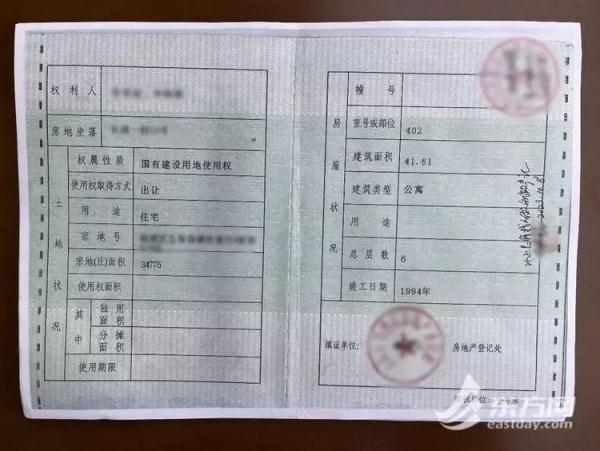 权利人
房地坐落
土地状况
权属性质 国有建设用地使用权
使用权取得方式 出让
用途 住宅
宗地号
宗地(丘)面积 34775
使用权面积
其中
独用面积
分摊面积
使用期限
房屋状况
幢号
室号或部位 402
建筑面积 41.61
建筑类型 公寓
用途
总层数 6
竣工日期 1994年
填证单位: 房地产登记处
2023.10.8
东方网
eastday.com